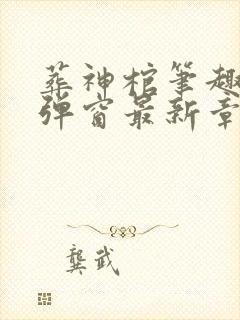 葬神棺笔趣
弹窗最新章
龚武